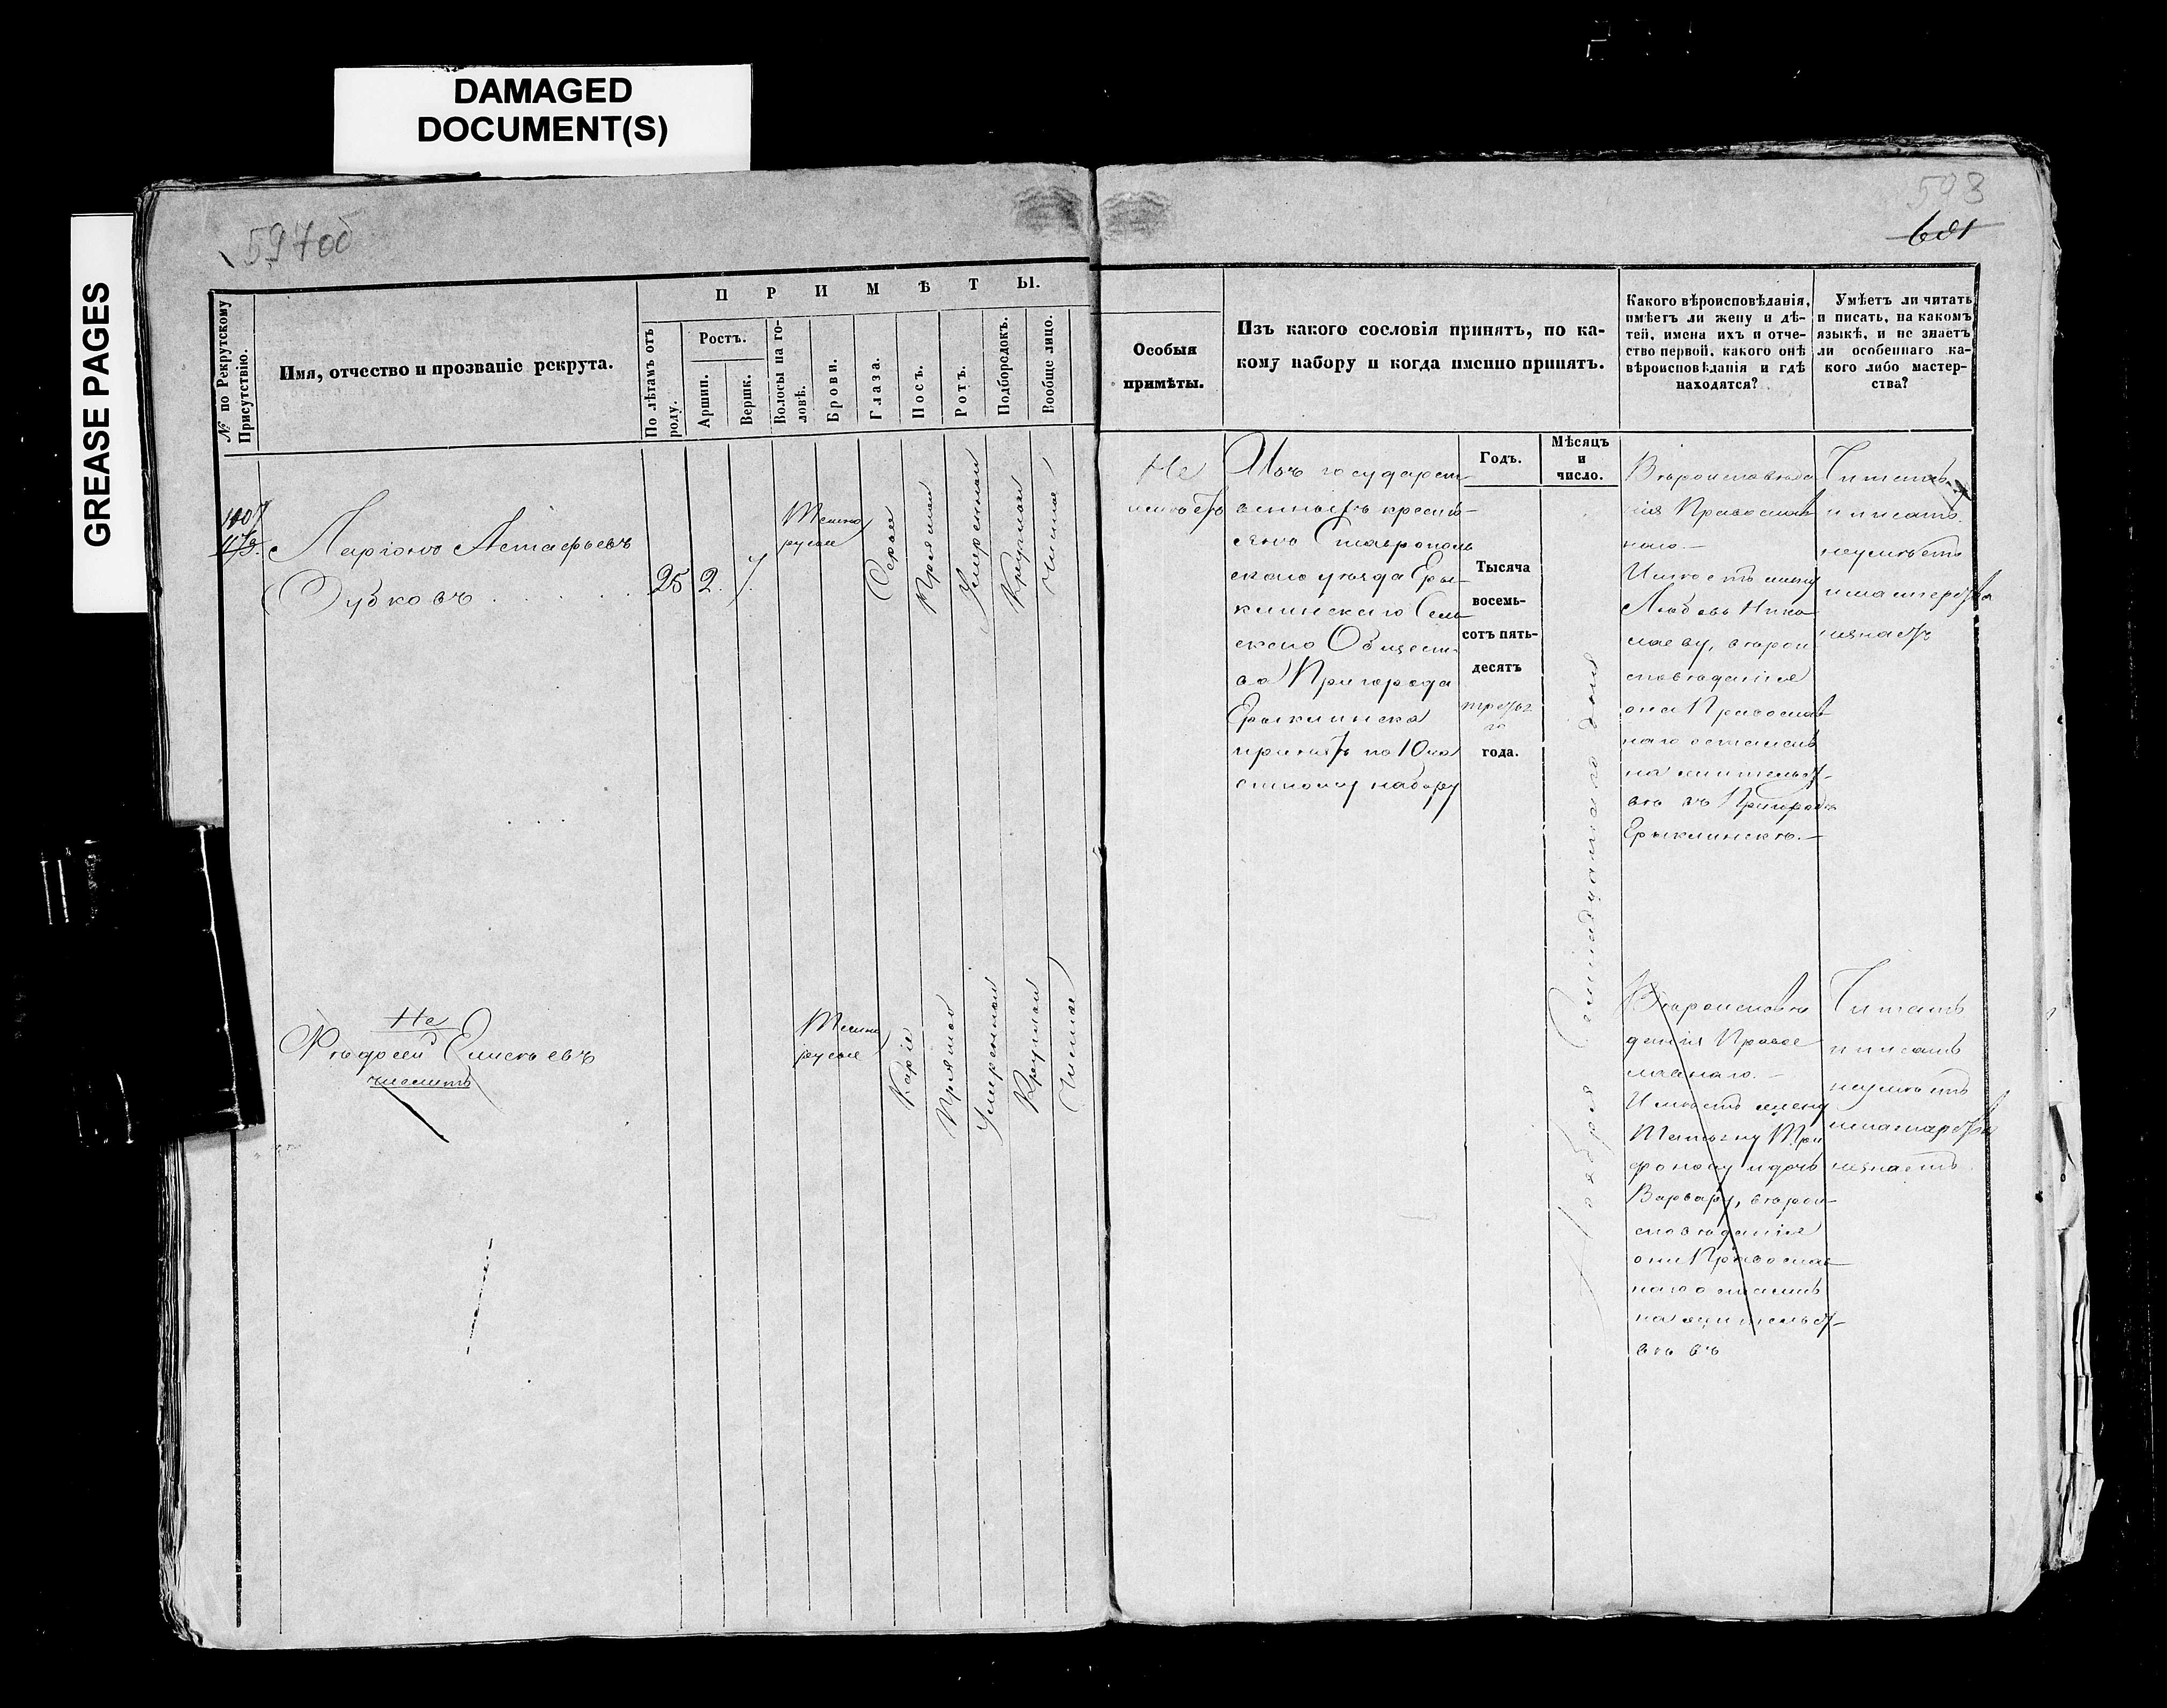 DAMAGED
DOCUMENT(S)
GREASE PAGES
597об
593
601
№ по Рекрутскому
Присутствію.
Имя, отчество и прозваніе рекрута.
П Р И М Ѣ Т Ы.
По лѣтамъ отъ
роду.
Ростъ.
Аршин.
Вершк.
Волосы на го-
ловѣ.
Брови.
Глаза.
Носъ.
Ротъ.
Подбородокъ.
Вообще лицо.
Особыя
примѣты.
Изъ какого сословія принятъ, по ка-
кому набору и когда именно принятъ.
Какого вѣроисповѣданія,
имѣетъ ли жену и дѣ-
тей, имена ихъ и отче-
ство первой, какого онѣ
вѣроисповѣданія и гдѣ
находятся?
Умѣетъ ли читать
и писать, на какомъ
языкѣ, и не знаетъ
ли особеннаго ка-
кого либо мастер-
ства?
Годъ.
Мѣсяцъ
и
число.
Ларіонъ Астафьевъ
Дубковъ
25
2.
7.
Темно
русые
Серые
Прямой
Умеренный
Круглый
Чистое
Не
имѣетъ
Изъ государст-
венныхъ кресть-
янъ Ставрополь
скаго уѣзда Еры-
клинскаго Сель
скаго Общест-
ва Пригорода
Ерыклинска
принятъ по 10 ча
стному набору
Тысяча
восемь-
сотъ пять-
десятъ
третьяго
года.
Ноября
дня
Вѣроисповѣда
нія Православ
наго.—
Имѣетъ жену
Любовь Нико
лаеву, вѣрои
сповѣданія
она Православ
наго оставлена
на жительст-
вѣ въ Пригородѣ
Ерыклинскѣ.—
Читать
и писать
неумѣетъ
и мастерства
незнаетъ
Не
Андрей Елисѣевъ
числить
Темно
русые
Каріе
Прямой
Умеренный
Круглый
Чистое
Вѣроисповѣ
данія Правос
лавнаго.—
Имѣетъ жену
Татьяну Три
фонову и дочь
Варвару, вѣрои-
сповѣданія
они Православ-
наго
на жительст-
вѣ въ
Читать
и писать
неумѣетъ
и мастерства
незнаетъ